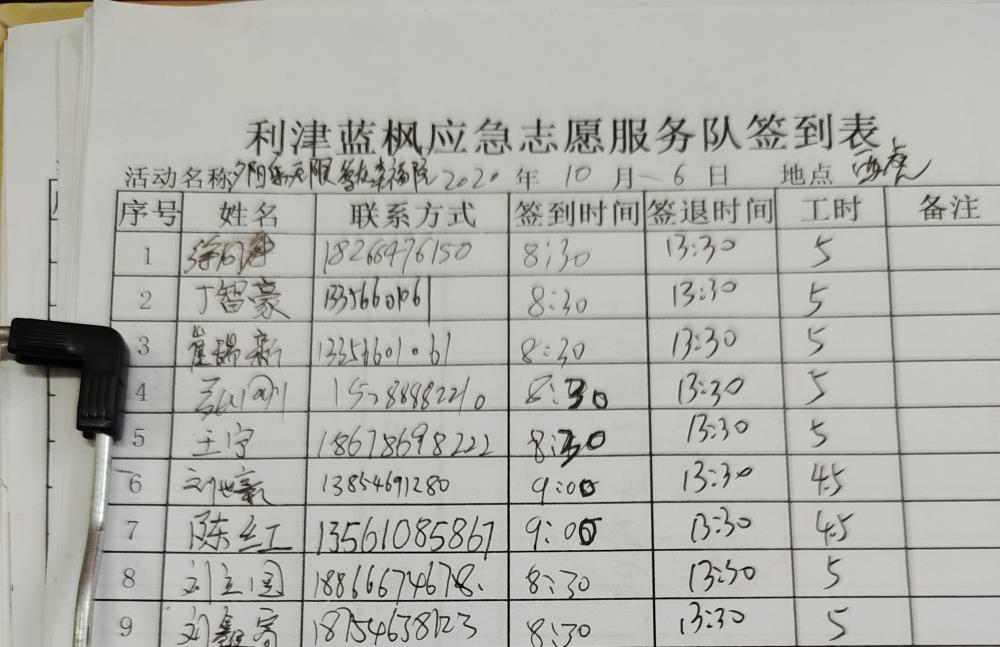 利津蓝枫应急志愿服务队签到表
活动名称 夕阳乐无限 幸福院 2020 年 10 月 6 日 地点
序号 姓名 联系方式 签到时间 签退时间 工时 备注
1 18266476150 8:30 13:30 5
2 丁智豪 13356601061 8:30 13:30 5
3 崔瑞新 13356601061 8:30 13:30 5
4 8:30 13:30 5
5 王宁 18678698222 8:30 13:30 5
6 刘世豪 13854691280 9:00 13:30 4.5
7 陈红 13561085867 9:00 13:30 4.5
8 刘立国 18866674678 8:30 13:30 5
9 刘鑫 18754638123 8:30 13:30 5